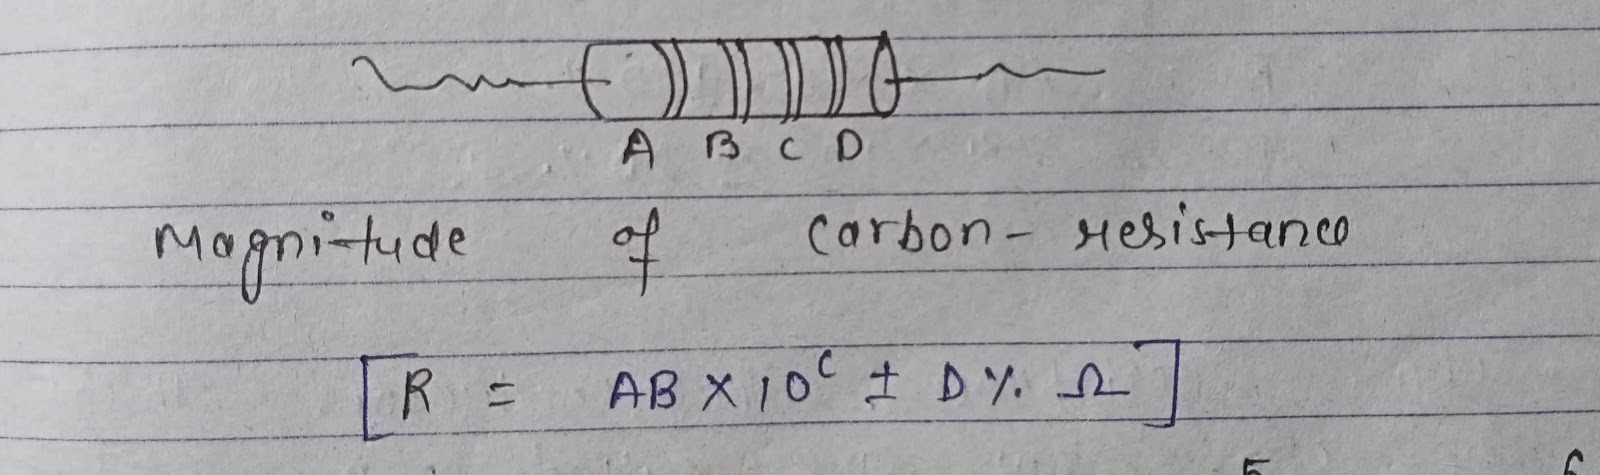 A B C D
Magnitude of carbon-resistance
[R = AB X 10^C ± D % Ω]
5 6